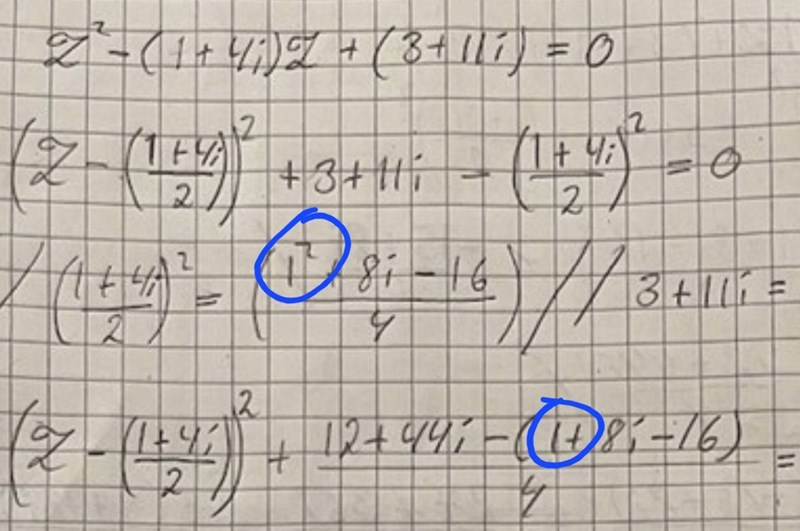 Z² - (1+4i)Z + (3+11i) = 0
(Z - ((1+4i)/2))² + 3+11i - ((1+4i)/2)² = 0
/ ((1+4i)/2)² = ((1²+8i-16)/4) // 3+11i =
(Z - ((1+4i)/2))² + (12+44i-(1+8i-16))/4 =